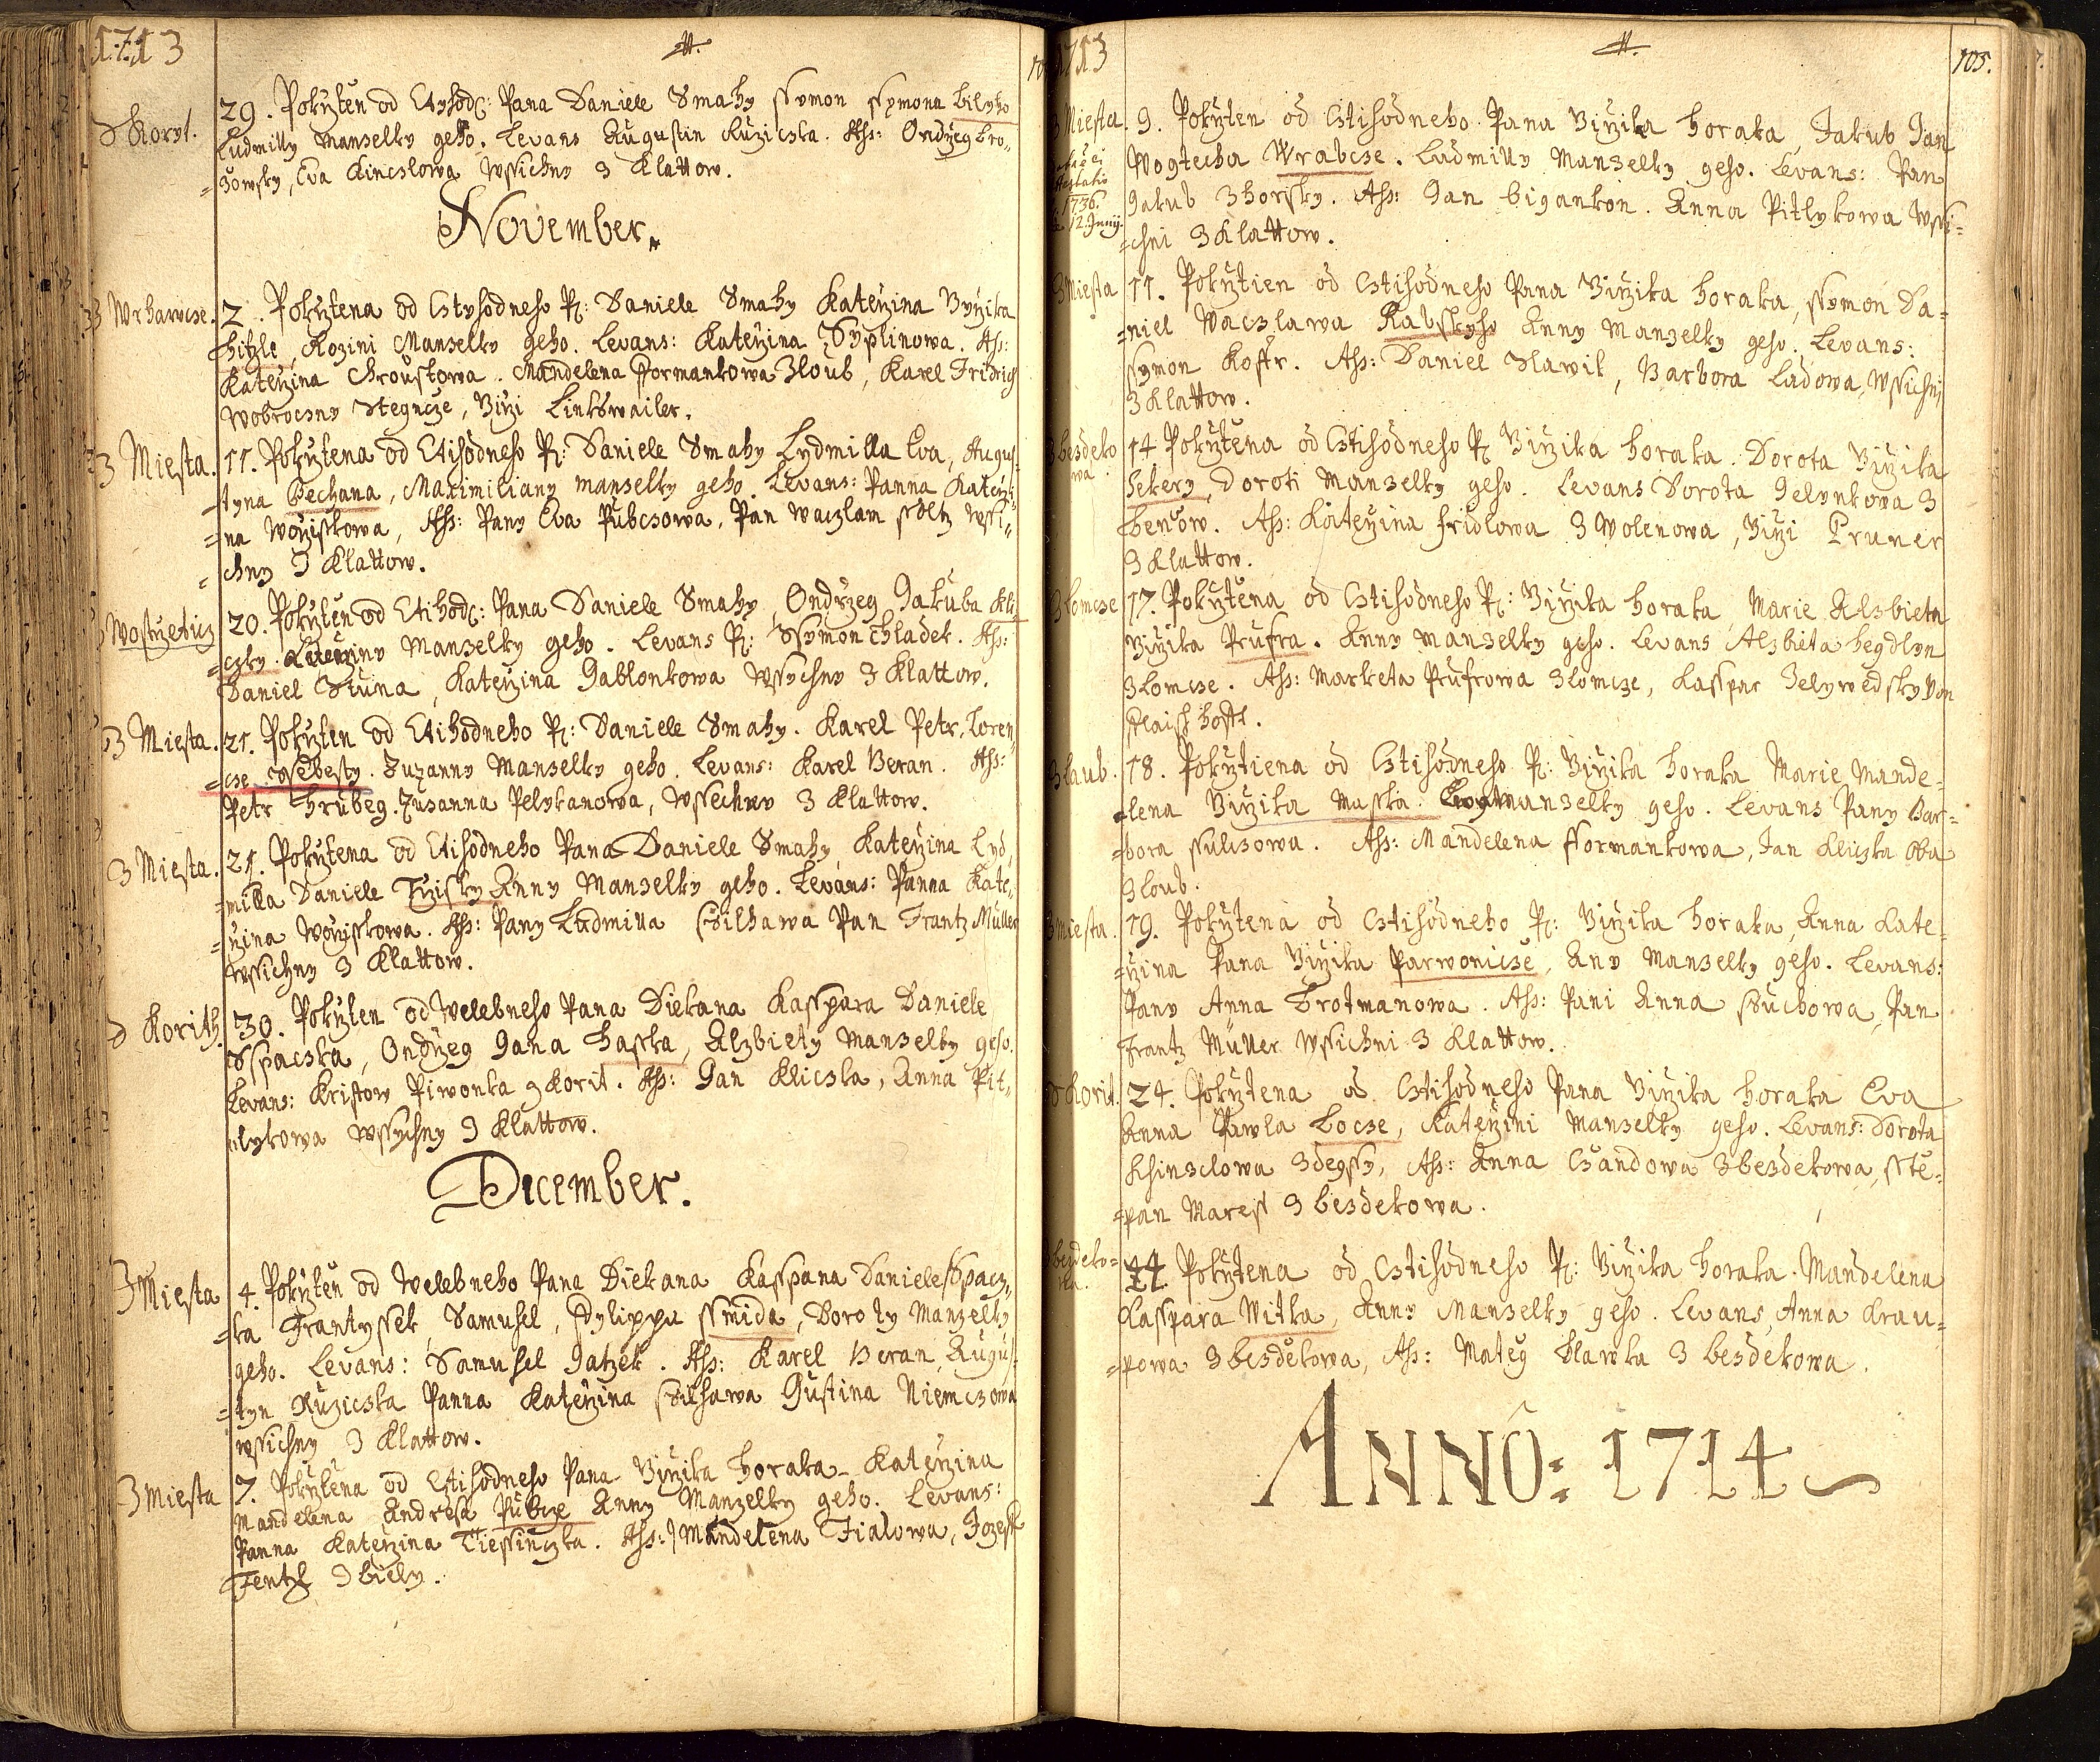 1713
29. Pokrztěn od Ctihodc: Pana Daniele Smahy Ssymon Ssymona Bilyho
Z Koryt.
Ludmilly Manzelky geho. Levans Augustin Ruzicska. Ass: Ondrzeg Bro=
=zowsky, Eva Kincslowa Wssichny z Klattow.
November.
Z Wrhawcze.
2. Pokrztena od Cstyhodneho P: Daniele Smahy Katerzina Girzika
Hitzle, Rozini Manzelky geho. Levans: Katerzina Ssyplinowa. Ass:
Katerzina Chroustowa. Mandelena Formankowa Zloub, Karel Fridrich
Wobrocsny Stegncze, Girzi Linkswailer.
Z Miesta.
11. Pokrztena od Ctihodneho P: Daniele Smahy Lydmilla Eva, Augus=
=tyna Pechana, Maximiliany manzelky geho. Levans: Panna Katerzi=
=na Woyiskowa, Ass: Pany Eva Pubcsowa, Pan Waczlaw Ssoltz Wssi=
=chny Z Klattow.
Wostrzetiz
20. Pokrztěn od Ctihodc: Pana Daniele Smahy, Ondrzeg Jakuba Kli=
=czky. Manzelky geho. Levans P: Ssymon Chladek. Ass:
Daniel Stuna, Katerzina Jablonkowa Wssychny Z Klattow.
Z Miesta.
21. Pokrzten od Ctihodneho P: Daniele Smahy. Karel Petr, Loren=
=cse Nebesty. Zuzanny Manzelky geho. Levans: Karel Beran. Ass:
Petr Hrubeg. Zusanna Pelykanowa, Wssechny Z Klattow.
Z Miesta.
21. Pokrztena od Ctihodneho Pana Daniele Smahy, Katerzina Lyd=
=milla Daniele Trzisky Anny Manzelky geho. Levans: Panna Kate=
=rzina Woyiskowa. Ass: Pany Ludmilla Ssilhawa Pan Frantz Müller
Wssichny Z Klattow.
Z Korith.
30. Pokrzten od Welebneho Pana Diekana Kasspara Daniele
Sspacska, Ondrzeg Jana Hasska, Alzbiety Manzelky geho.
Levans: Kristow Piwonka z Korit. Ass: Jan Klicska, Anna Pit=
=lykowa Wssychny Z Klattow.
December.
Z Miesta
4. Pokrztěn od Welebneho Pana Diekana Kasspara Daniele Sspacz=
=ka Frantyssek, Samuhel, Fylippa Ssmida, Doroty Manzelky
geho. Levans: Samuhel Jatzek. Ass: Karel Beran, Augus=
=tyn Ruzicska Panna Katerzina Ssilhawa Justina Niemczowa
Wssichny Z Klattow.
Z Miesta
7. Pokrztena od Ctihodneho Pana Girzika Horaka Katerzina
Mandelena Andresa Pubcze Anny Manzelky geho. Levans:
Panna Katerzina Tiessinczka. Ass: Mandelena Fialowa, Jozeff
Fentzl Z Biely.
1713
105.
Z Miesta.
9. Pokrzten od Cstihodneho Pana Girzika Horaka, Jakub Jan
1736.
12 Junij.
Wogtecha Wrabcse. Ludmilly Manzelky geho. Levans: Pan
Jakub Zhorsky. Ass: Jan Bigankon. Anna Pitlykowa Wssi=
=chni Z Klattow.
Z Miesta
11. Pokrztien od Cstihodneho Pana Girzika Horaka, Ssymon Da=
=niel Waczlawa Rabskyho Anny Manzelky geho. Levans:
Ssymon Kosstr. Ass: Daniel Slawik, Barbora Ladowa, Wssichni
Z Klattow.
Z Besdeko
wa
14 Pokrztena od Cstihodneho P: Girzika Horaka. Dorota Girzika
Sekery, Doroti Manzelky geho. Levans Dorota Jelynkowa z
Benow. Ass: Katerzina Fridlowa z Wolenowa, Girzi Pruner
Z Klattow.
Z Lomcse
17. Pokrztena od Cstihodneho P: Girzika Horaka, Marie Alzbieta
Girzika Prufra. Anny Manzelky geho. Levans Alzbieta Hegdlyn
z Lomcse. Ass: Marketa Prufrowa z Lomcze, Kasspar Jelywedsky Von
Flaisshossl.
Z Laub.
18. Pokrztiena od Cstihodneho P: Girzika Horaka Marie Mande=
=lena Girzika Masska. Manzelky geho. Levans Pany Bar=
=bora Ssulcsowa. Ass: Mandelena Fformankowa, Jan Klicska Oba
Z Loub.
Z Miesta.
19. Pokrztena od Cstihodneho P: Girzika Horaka, Anna Kate=
=rzina Pana Girzika Parwonicse, Any Manzelky geho. Levans:
Pany Anna Brotmanowa. Ass: Pani Anna Ssuchowa, Pan
Frantz Müller Wssichni Z Klattow.
Z Korit.
24. Pokrztena od Cstihodneho Pana Girzika Horaka Eva
Anna Pawla Locse, Katerzini Manzelky geho. Levans: Dorota
Khinzclowa Zdegssy, Ass: Anna Csandowa z Besdekowa, Sste=
=pan Maress z Besdekowa.
Z Besdeko=
wa.
24. Pokrztena od Cstihodneho P: Girzika Horaka. Mandelena
Kasspara Witka, Anny Manzelky geho. Levans Anna Krau=
=powa z Besdekowa, Ass: Mateg Hlawka z Besdekowa.
ANNÔ: 1714